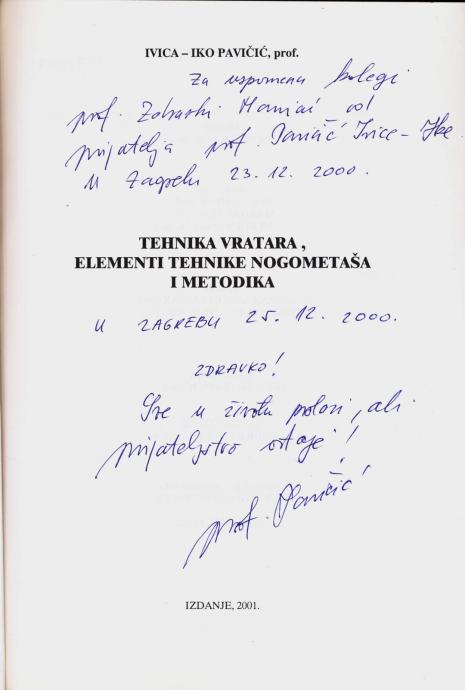 IVICA – IKO PAVIČIĆ, prof.
Za uspomenu kolegi
prof. Zdravki od
prijatelja prof. Pavičić Ivice – Ike
U Zagrebu 23. 12. 2000.
TEHNIKA VRATARA ,
ELEMENTI TEHNIKE NOGOMETAŠA
I METODIKA
U ZAGREBU 25. 12. 2000.
ZDRAVKO!
Sve u životu prolazi, ali
prijateljstvo ostaje!
prof. Pavičić
IZDANJE, 2001.